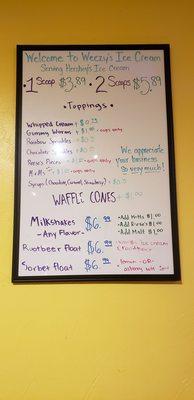 Welcome to Weezy's Ice Cream
Serving Hershey's Ice Cream
• 1 Scoop $3.89 • 2 Scoops $5.89
• Toppings •
Whipped Cream
Gummy Worms + $1.00 - cups only
Rainbow Sprinkles
Chocolate Sprinkles
Reese's Pieces - cups only
M & M's - cups only
Syrups (Chocolate, Caramel, Strawberry)
We appreciate
your business
so very much!
WAFFLE CONES + $1.00
Milkshakes $6.99
- Any Flavor -
• Add Nutts $1.00
• Add Reese's $1.00
• Add Malt $1.00
Rootbeer Float $6.99
Sorbet Float $6.99
• lemon - OR -